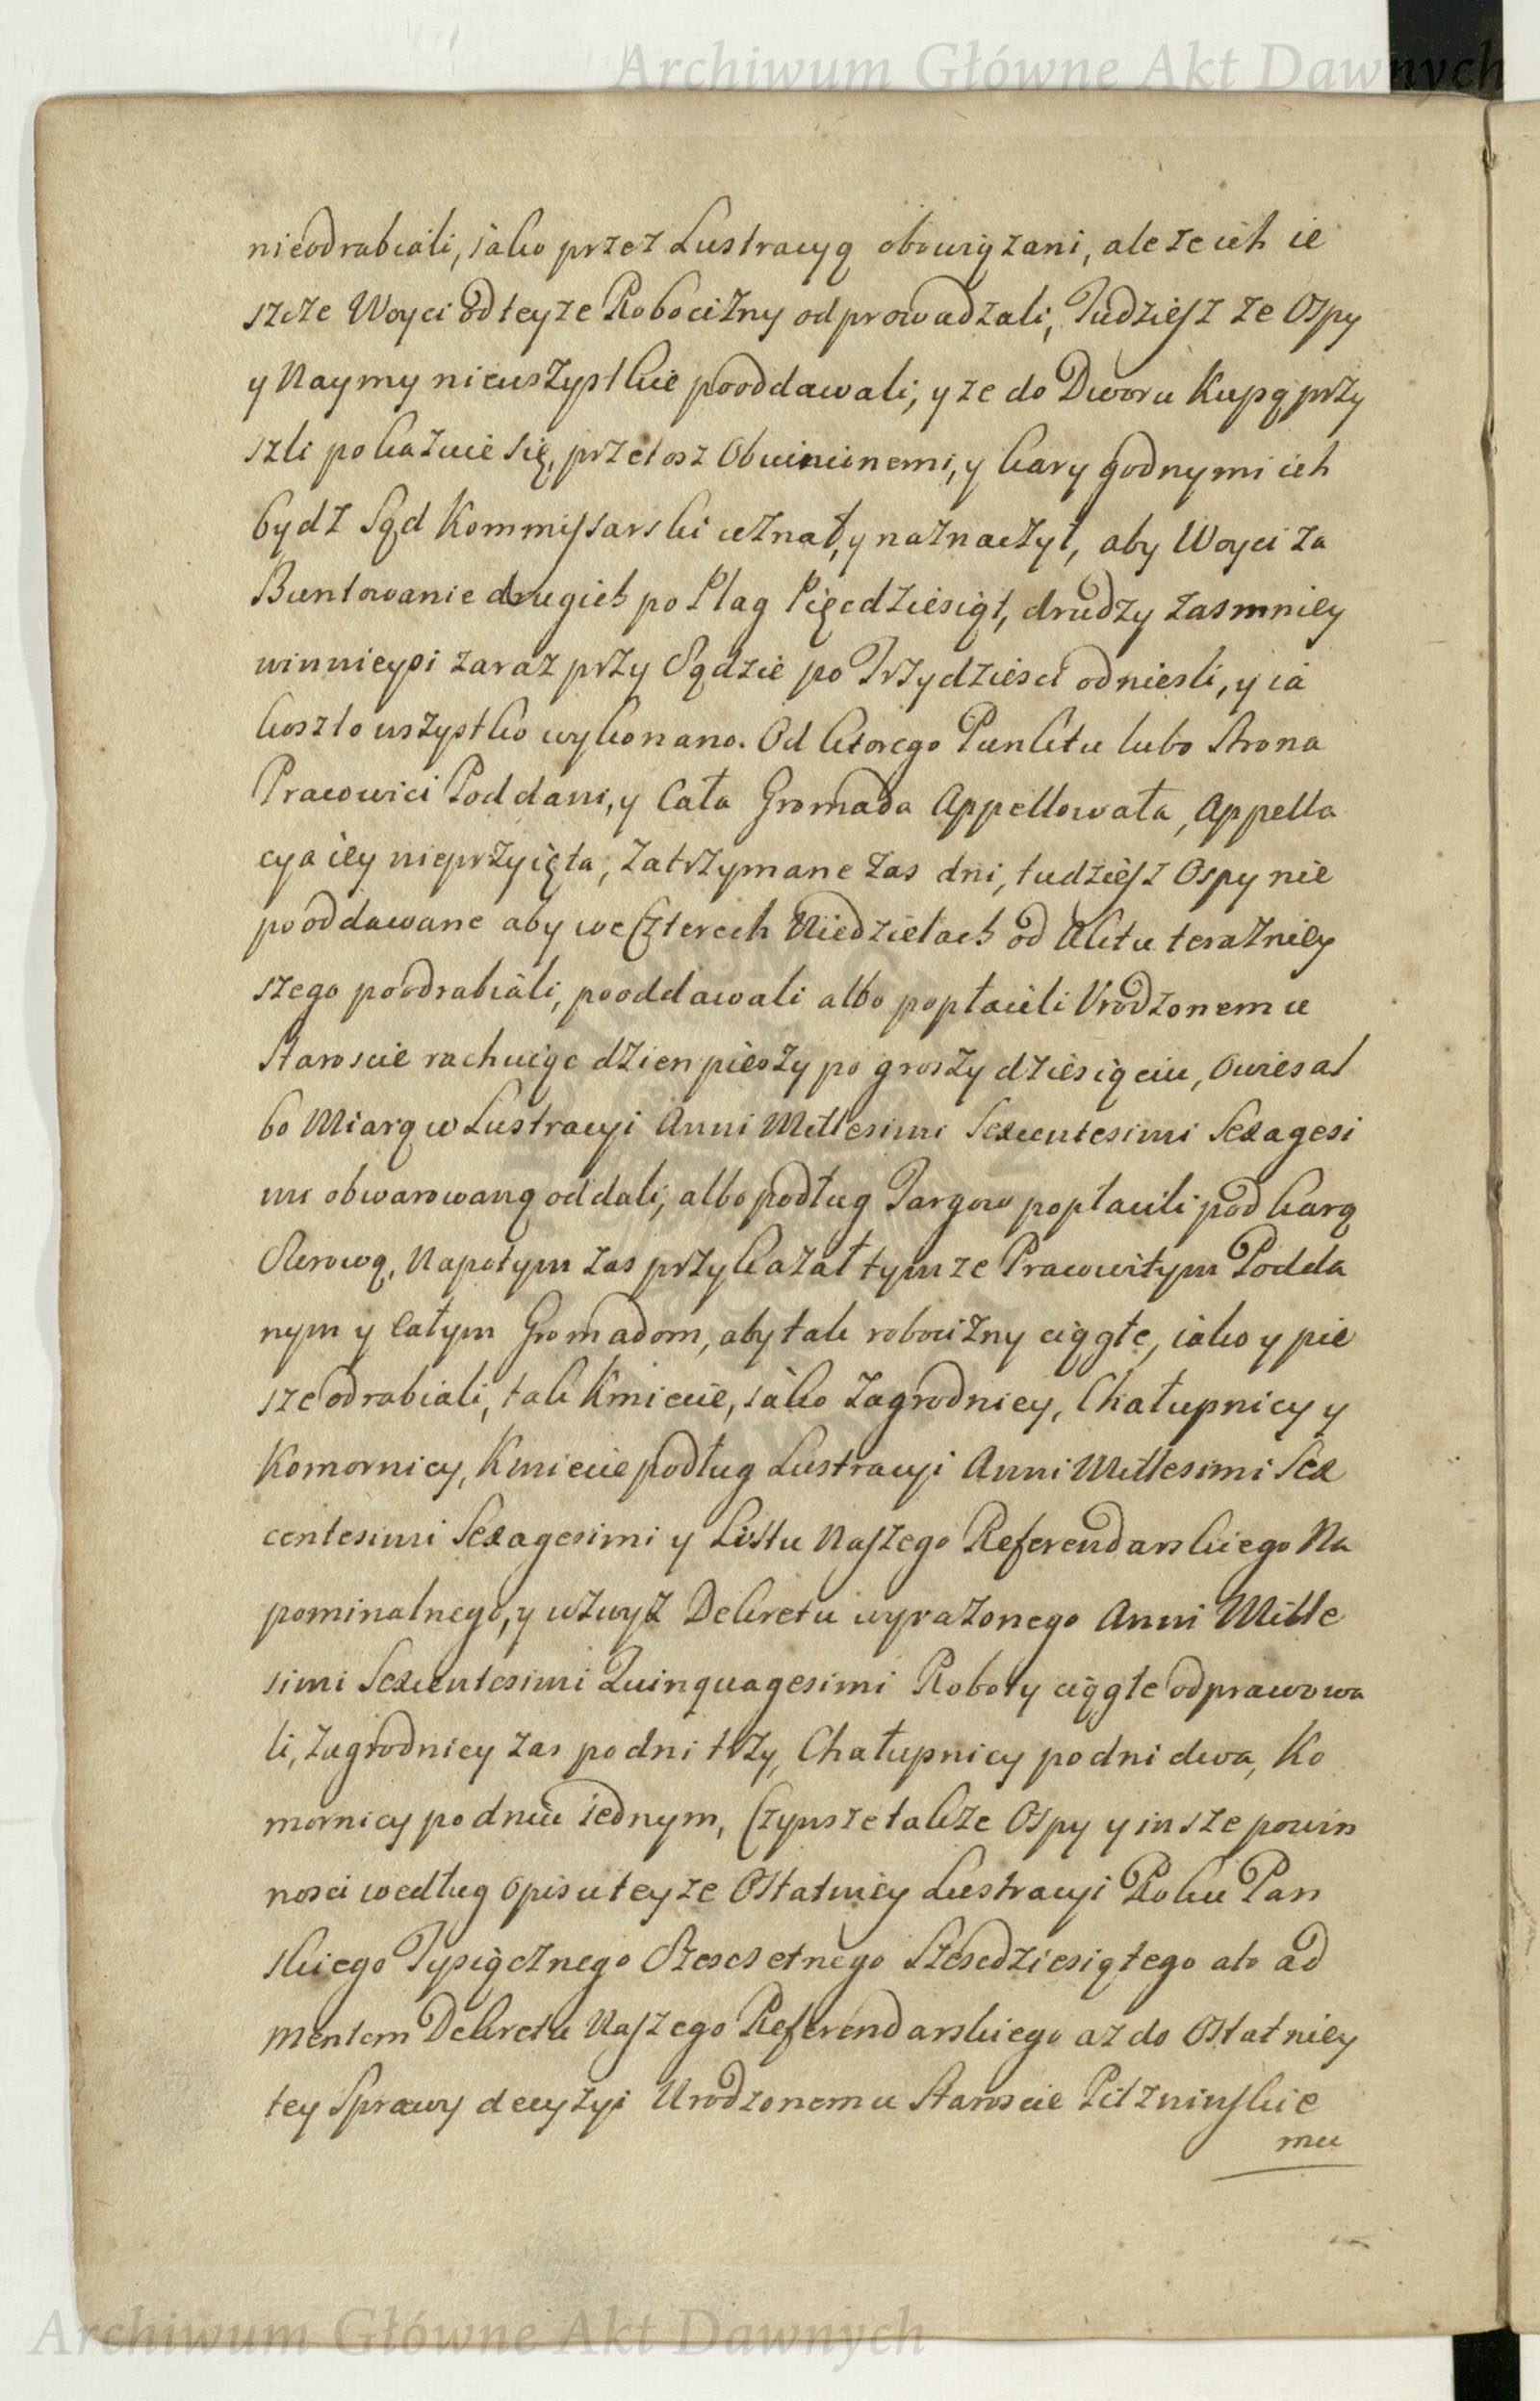 Archiwum Główne Akt Dawnych
nieodrabiali, iako przez Lustracyą obowiązani, ale że ich ie
szcze Woyci od teyze Robocizny odprowadzali, Tudzieſz ze Ospy
y Naymy niewszystkie pooddawali, y ze do Dworu Kupą przy
szli pokazuie się, przetosz Obwinionemi, y kary godnymi ich
bydz Sąd Kommiſsarski uznał, y naznaczył, aby Woyci za
Buntowanie drugich po Plag Pięcdziesiąt, drudzy zas mniey
winnieysi zaraz przy Sądzie po Trzydziesci odniesli, y ia
koszto wszystko wykonano. Od ktorego Punktu lubo Strona
Pracowici Poddani, y Cała Gromada Appellowała, Appella
cya iey nieprzyięta, zatrzymane zas dni, tudzieſz Ospy nie
pooddawane aby we Czterech Niedzielach od Aktu terazniey
szego poodrabiali, pooddawali albo popłacili Vrodzonemu
Staroscie rachuiąc dzien pieszy po groszy dziesięciu, Owies al
bo Miarą w Lustracyi Anni Millesimi Sexcentesimi Sexagesi
mi obwarowaną oddali, albo podług Targow popłacili pod karą
Surową, Napotym zas przykazał tymze Pracowitym Podda
nym y Całym Gromadom, aby tak robocizny ciągłe, iako y pie
sze odrabiali, tak Kmiecie, iako Zagrodnicy, Chałupnicy y
Komornicy, Kmiecie podług Lustracyi Anni Millesimi Sex
centesimi Sexagesimi y Listu Naſzego Referendarskiego Na
pominalnego, y wzwyż Dekretu wyrażonego Anni Mille
simi Sexcentesimi Quinquagesimi Roboty ciągłe odprawowa
li, Zagrodnicy zas po dni trzy, Chałupnicy po dni dwa, Ko
mornicy po dniu iednym, Czynsze także Ospy y insze powin
nosci według opisu teyze Ostatniey Lustracyi Roku Pan
skiego Tysiącznego Szescsetnego Szescdziesiątego ato ad
mentem Dekretu Naſzego Referendarskiego aż do Ostatniey
tey Sprawy decyzyi Urodzonemu Staroscie Pilzninſkie
mu
Archiwum Główne Akt Dawnych